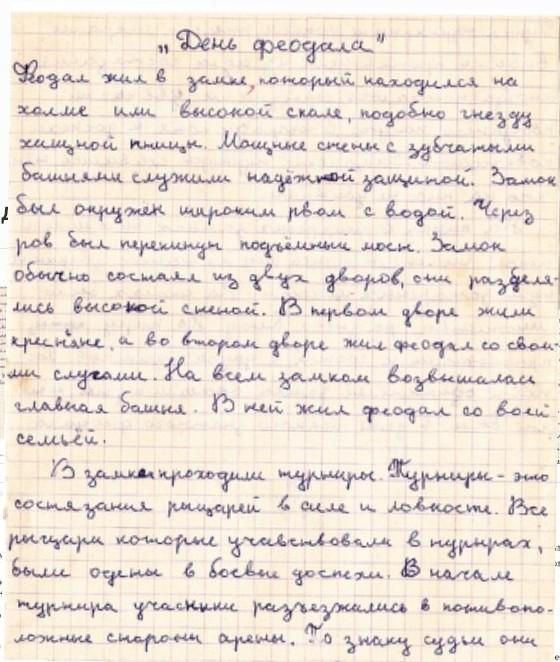 „День феодала"
Феодал жил в замке, который находился на
холме или высокой скале, подобно гнезду
хищной птицы. Мощные стены с зубчатыми
башнями служили надёжной защитой. Замок
был окружен широким рвом с водой. Через
ров был перекинут подъёмный мост. Замок
обычно состоял из двух дворов, они разделя-
лись высокой стеной. В первом дворе жили
крестьяне, а во втором дворе жил феодал со свои-
ми слугами. На всем замком возвышалась
главная башня. В ней жил феодал со воей
семьёй.
В замке проходили турниры. Турниры - это
состязания рыцарей в силе и ловкости. Все
рыцари которые учавствовали в турнирах,
были одеты в боевые доспехи. В начале
турнира учасники разъезжались в потивопо-
ложные стороны арены. По знаку судьи они